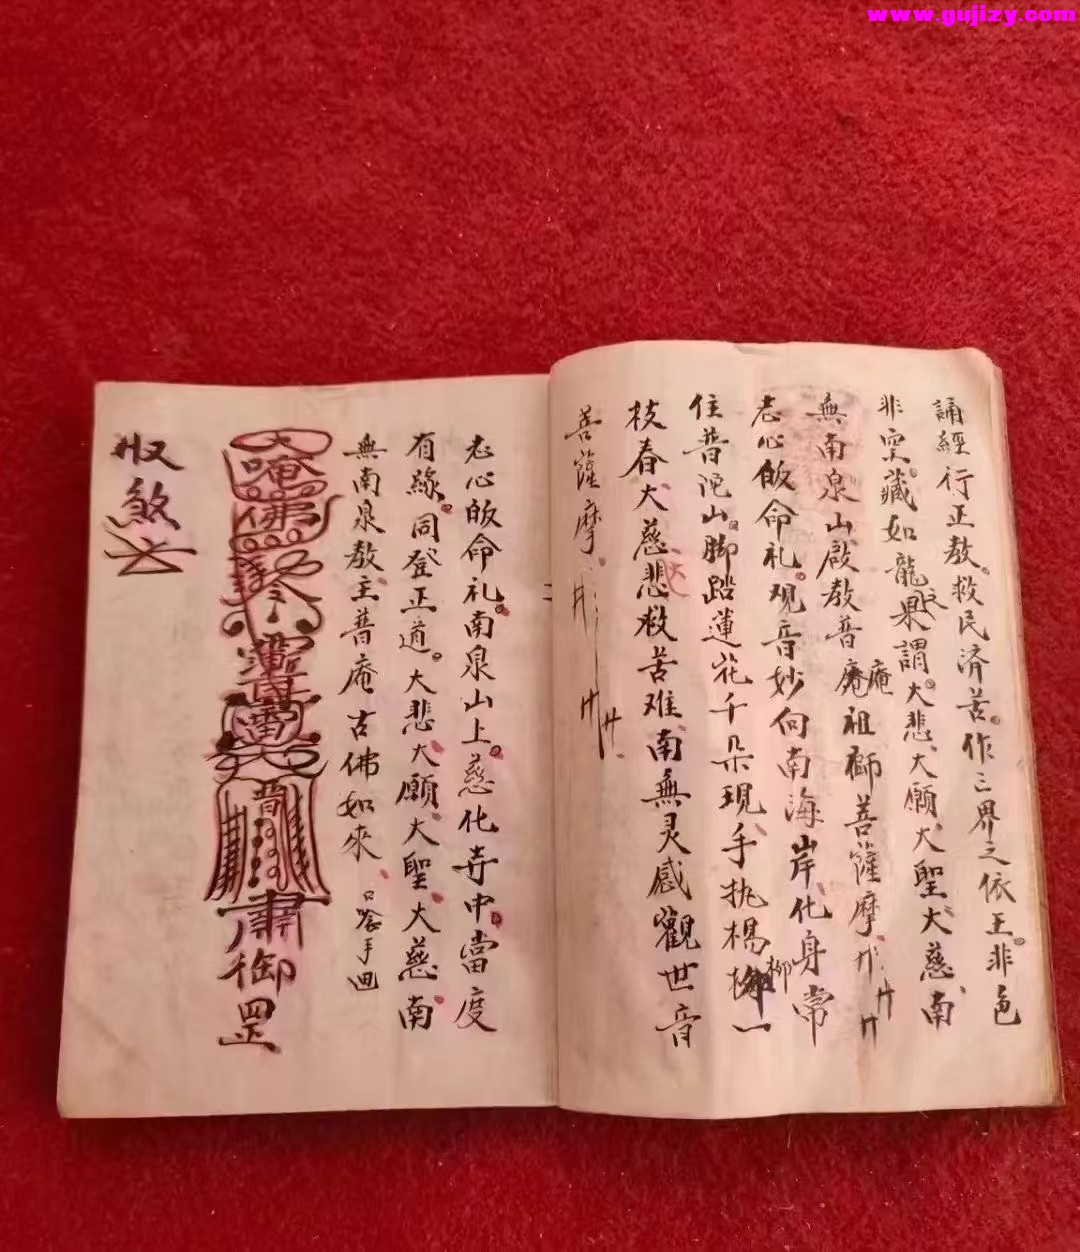 www.gujizy.com
誦經行正教救民済苦作三界之依王非色
非空藏如龍果謂大悲大願大聖大慈南
無南泉山啟教普庵祖師菩薩摩
志心皈命礼观音妙向南海岸化身常
住普陀山脚踏蓮花千朵現手执楊柳一
枝春大慈悲救苦难南無灵感觀世音
菩薩摩
志心皈命礼南泉山上慈化寺中當度
有緣同登正道大悲大願大聖大慈南
無南泉教主普庵古佛如來
唵佛
雷
普
肅御罡
收煞